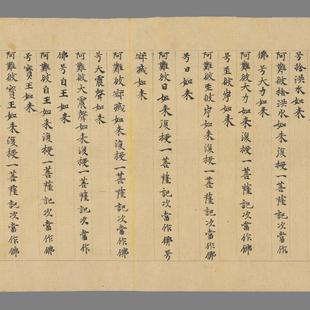 号捨洪水如来
阿難彼捨洪水如来復授一菩薩記次當作
佛号大力如来
阿難彼大力如来復授一菩薩記次當作佛
号至彼岸如来
阿難彼至彼岸如来復授一菩薩記次當作佛
号日如来
阿難彼日如来復授一菩薩記次當作佛号
寂滅如来
阿難彼寂滅如来復授一菩薩記次當作佛
号大震聲如来
阿難彼大震聲如来復授一菩薩記次當作
佛号自王如来
阿難彼自王如来復授一菩薩記次當作佛
号寶王如来
阿難彼寶王如来復授一菩薩記次當作佛